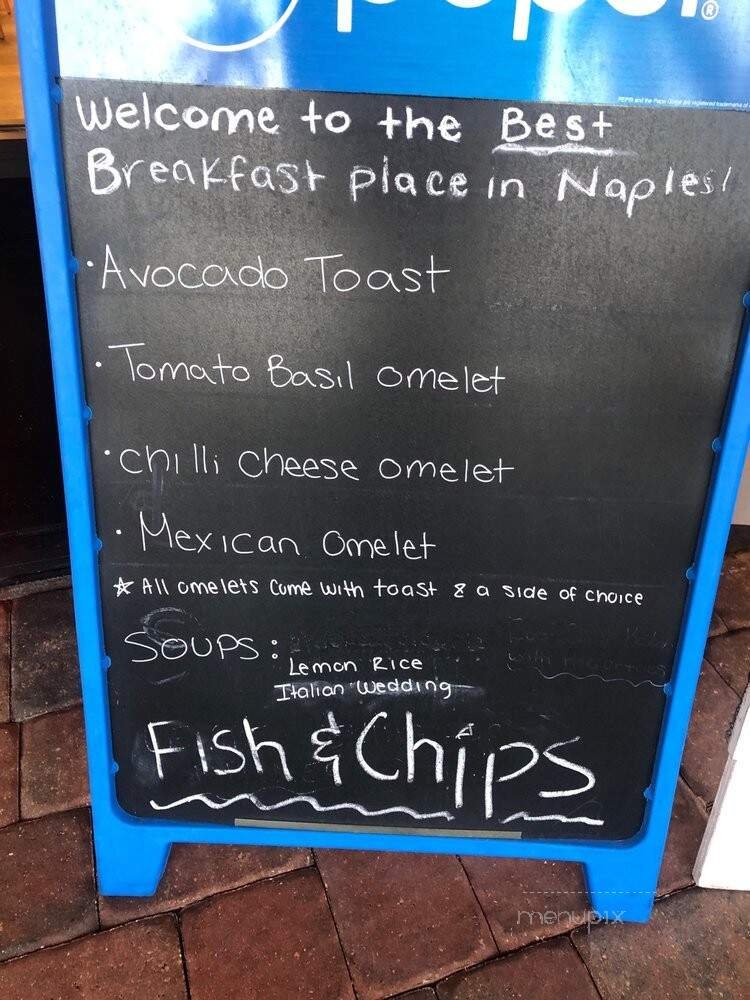 pepsi®
Welcome to the Best
Breakfast place in Naples!
• Avocado Toast
• Tomato Basil omelet
• chilli cheese omelet
• Mexican Omelet
☆ All omelets come with toast & a side of choice
SOUPS:
Lemon Rice
Italian Wedding
Fish & Chips
menupix